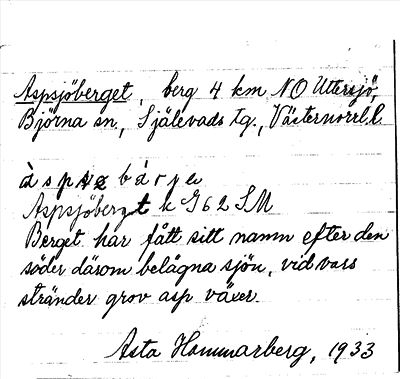 Aspsjöberget, berg 4 km NO Uttersjö,
Björna sn., Själevads tg., Västernorrl. l.
Aspsjöbergt k G62 SM
Berget har fått sitt namn efter den
söder därom belägna sjön, vid vars
stränder grov asp växer.
Asta Hammarberg, 1933